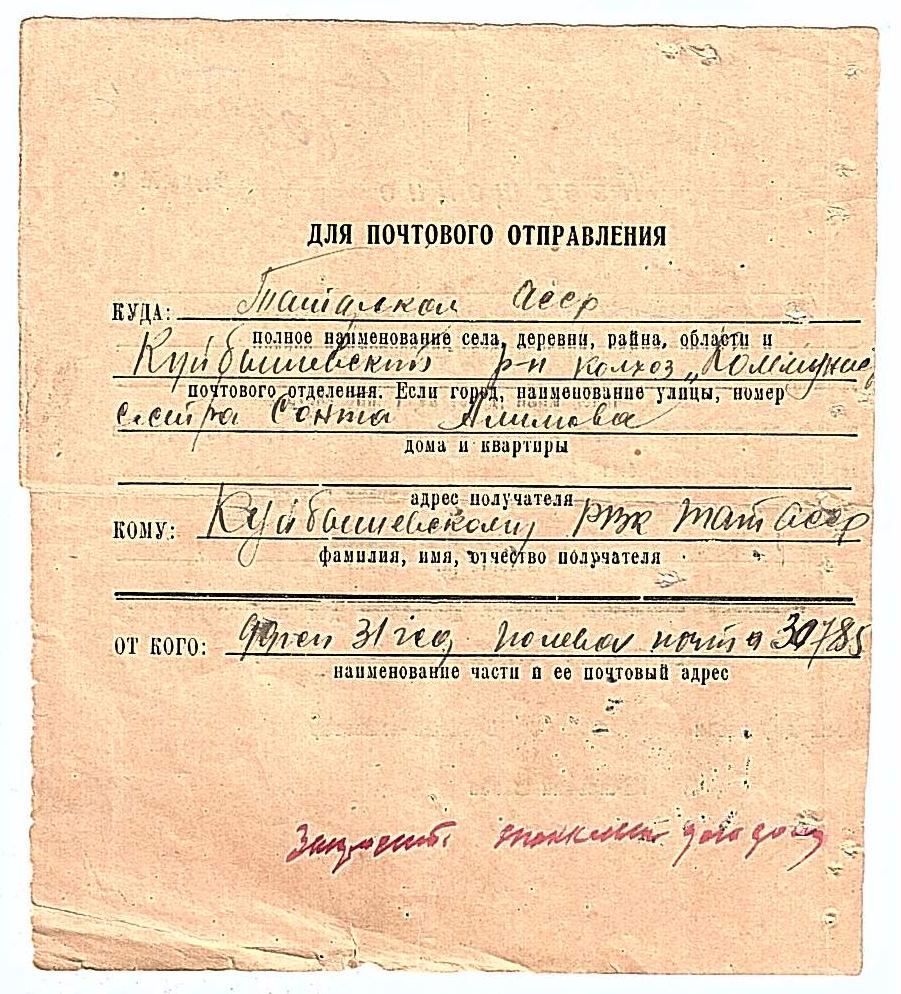 ДЛЯ ПОЧТОВОГО ОТПРАВЛЕНИЯ
КУДА: АССР
полное наименование села, деревни, райна, области и
Куйбышевский р-н колхоз „Коммунис
почтового отделения. Если город, наименование улицы, номер
сестра Алимова
дома и квартиры
адрес получателя
КОМУ: Куйбышевскому РВК Тат АССР
фамилия, имя, отчество получателя
ОТ КОГО: 31 гсд Полевая почта 30785
наименование части и ее почтовый адрес